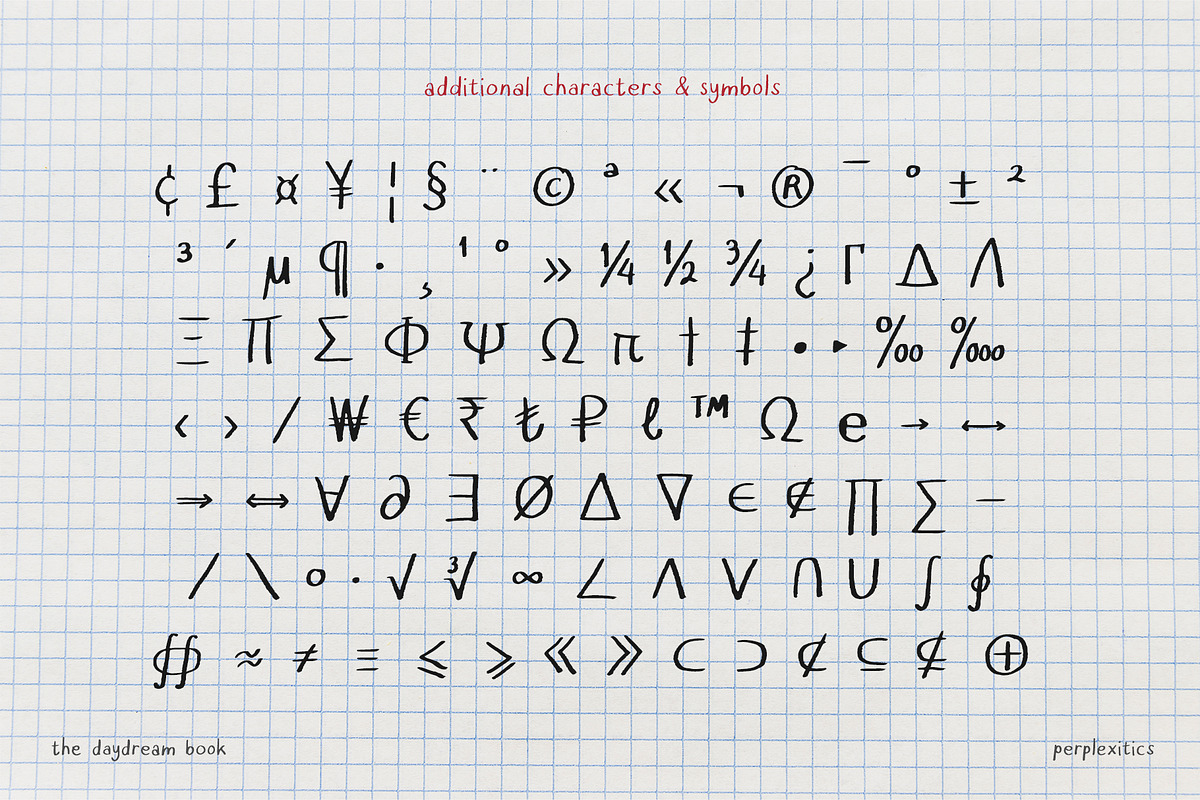 additional characters & symbols
¢ £ ¤ ¥ ¦ § ¨ © ª « ¬ ® ¯ ° ± ²
³ ´ µ ¶ · ¸ ¹ º » ¼ ½ ¾ ¿ Γ Δ Λ
Ξ Π Σ Φ Ψ Ω π † ‡ • ‣ ‰ ‱
‹ › ⁄ ₩ € ₹ ₺ ₽ ℓ ™ Ω ℮ → ↔
⇒ ⇔ ∀ ∂ ∃ ∅ ∆ ∇ ∈ ∉ ∏ ∑ −
∕ ∖ ∘ ∙ √ ∛ ∞ ∠ ∧ ∨ ∩ ∪ ∫ ∮
∯ ≈ ≠ ≡ ≤ ≥ ≪ ≫ ⊂ ⊃ ⊄ ⊆ ⊈ ⊕
the daydream book
perplexitics